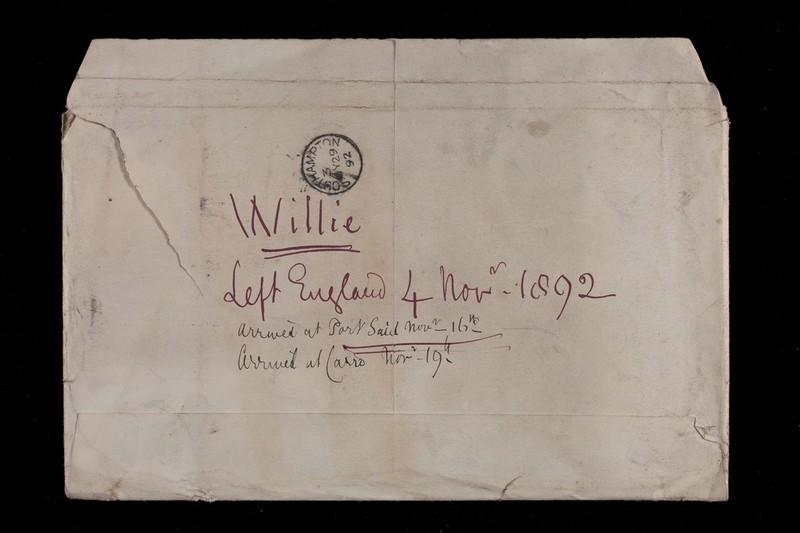 SOUTHAMPTON
MY 29
92
Willie
Left England 4 Novr - 1892
Arrived at Port Said Novr 16th
Arrived at Cairo Novr - 19th